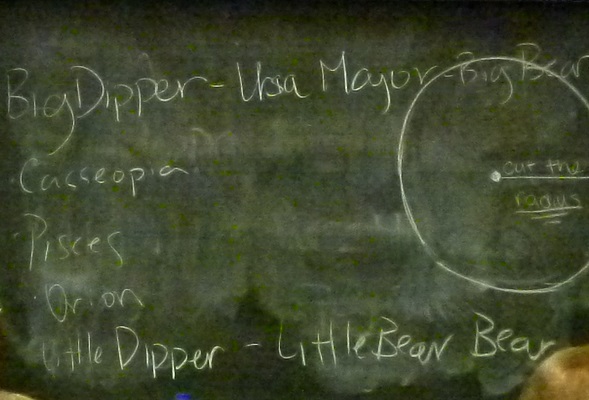 Big Dipper - Ursa Mayor - Big Bear
Casseopia
cut the
radius
Pisces
Orion
Little Dipper - Little Bear Bear